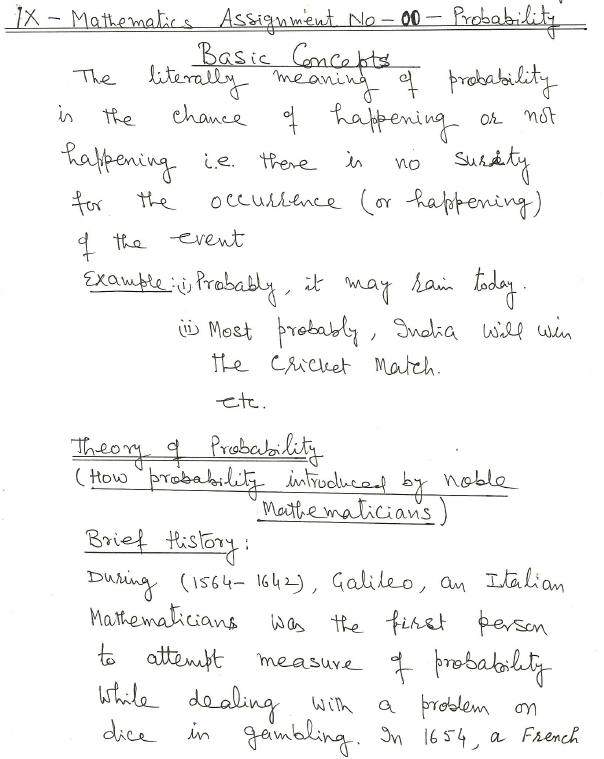 IX - Mathematics Assignment No - 00 - Probability
Basic Concepts
The literally meaning of probability
is the chance of happening or not
happening i.e. there is no surity
for the occurrence (or happening)
of the event
Example: (i) Probably, it may rain today.
(ii) Most probably, India will win
the Cricket Match.
etc.
Theory of Probability
(How probability introduced by noble
Mathematicians)
Brief History:
During (1564- 1642), Galileo, an Italian
Mathematicians was the first person
to attempt measure of probability
while dealing with a problem on
dice in gambling. In 1654, a French